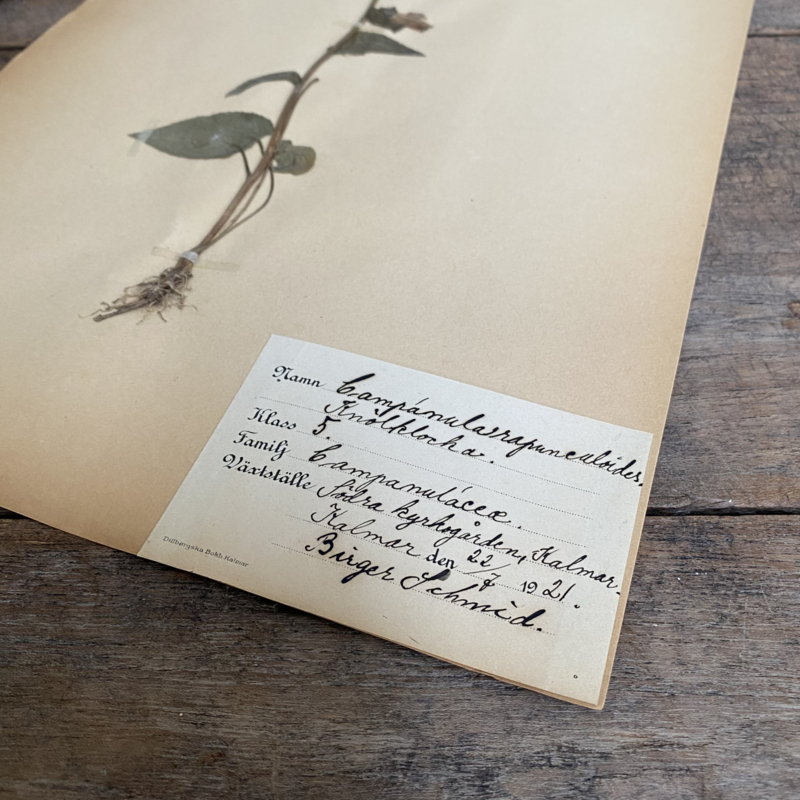 Namn Campánula rapunculoídes.
Knölklocka.
Klass 5.
Familj Campanuláceæ.
Växtställe Södra kyrkogården, Kalmar.
Kalmar den 22/7 1921.
Birger Schmid.
Dillbergska Bokh. Kalmar